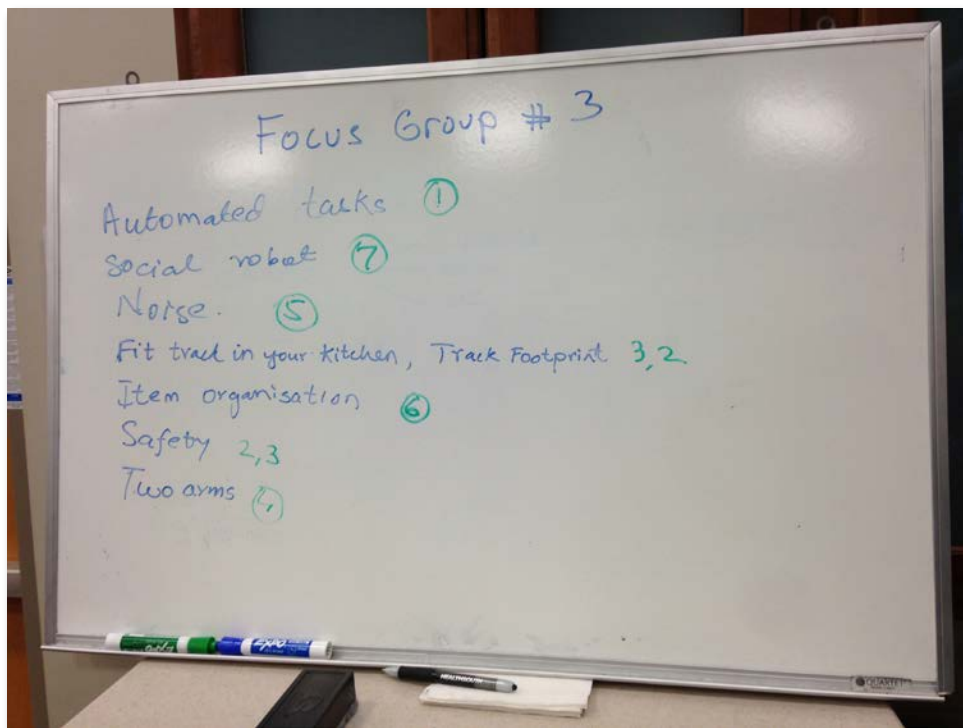 Focus Group # 3
Automated tasks 1
Social robot 7
Noise. 5
Fit track in your kitchen, Track Footprint 3,2
Item organisation 6
Safety 2,3
Two arms 4
EXPO
EXPO
HEALTHSOUTH
QUARTET